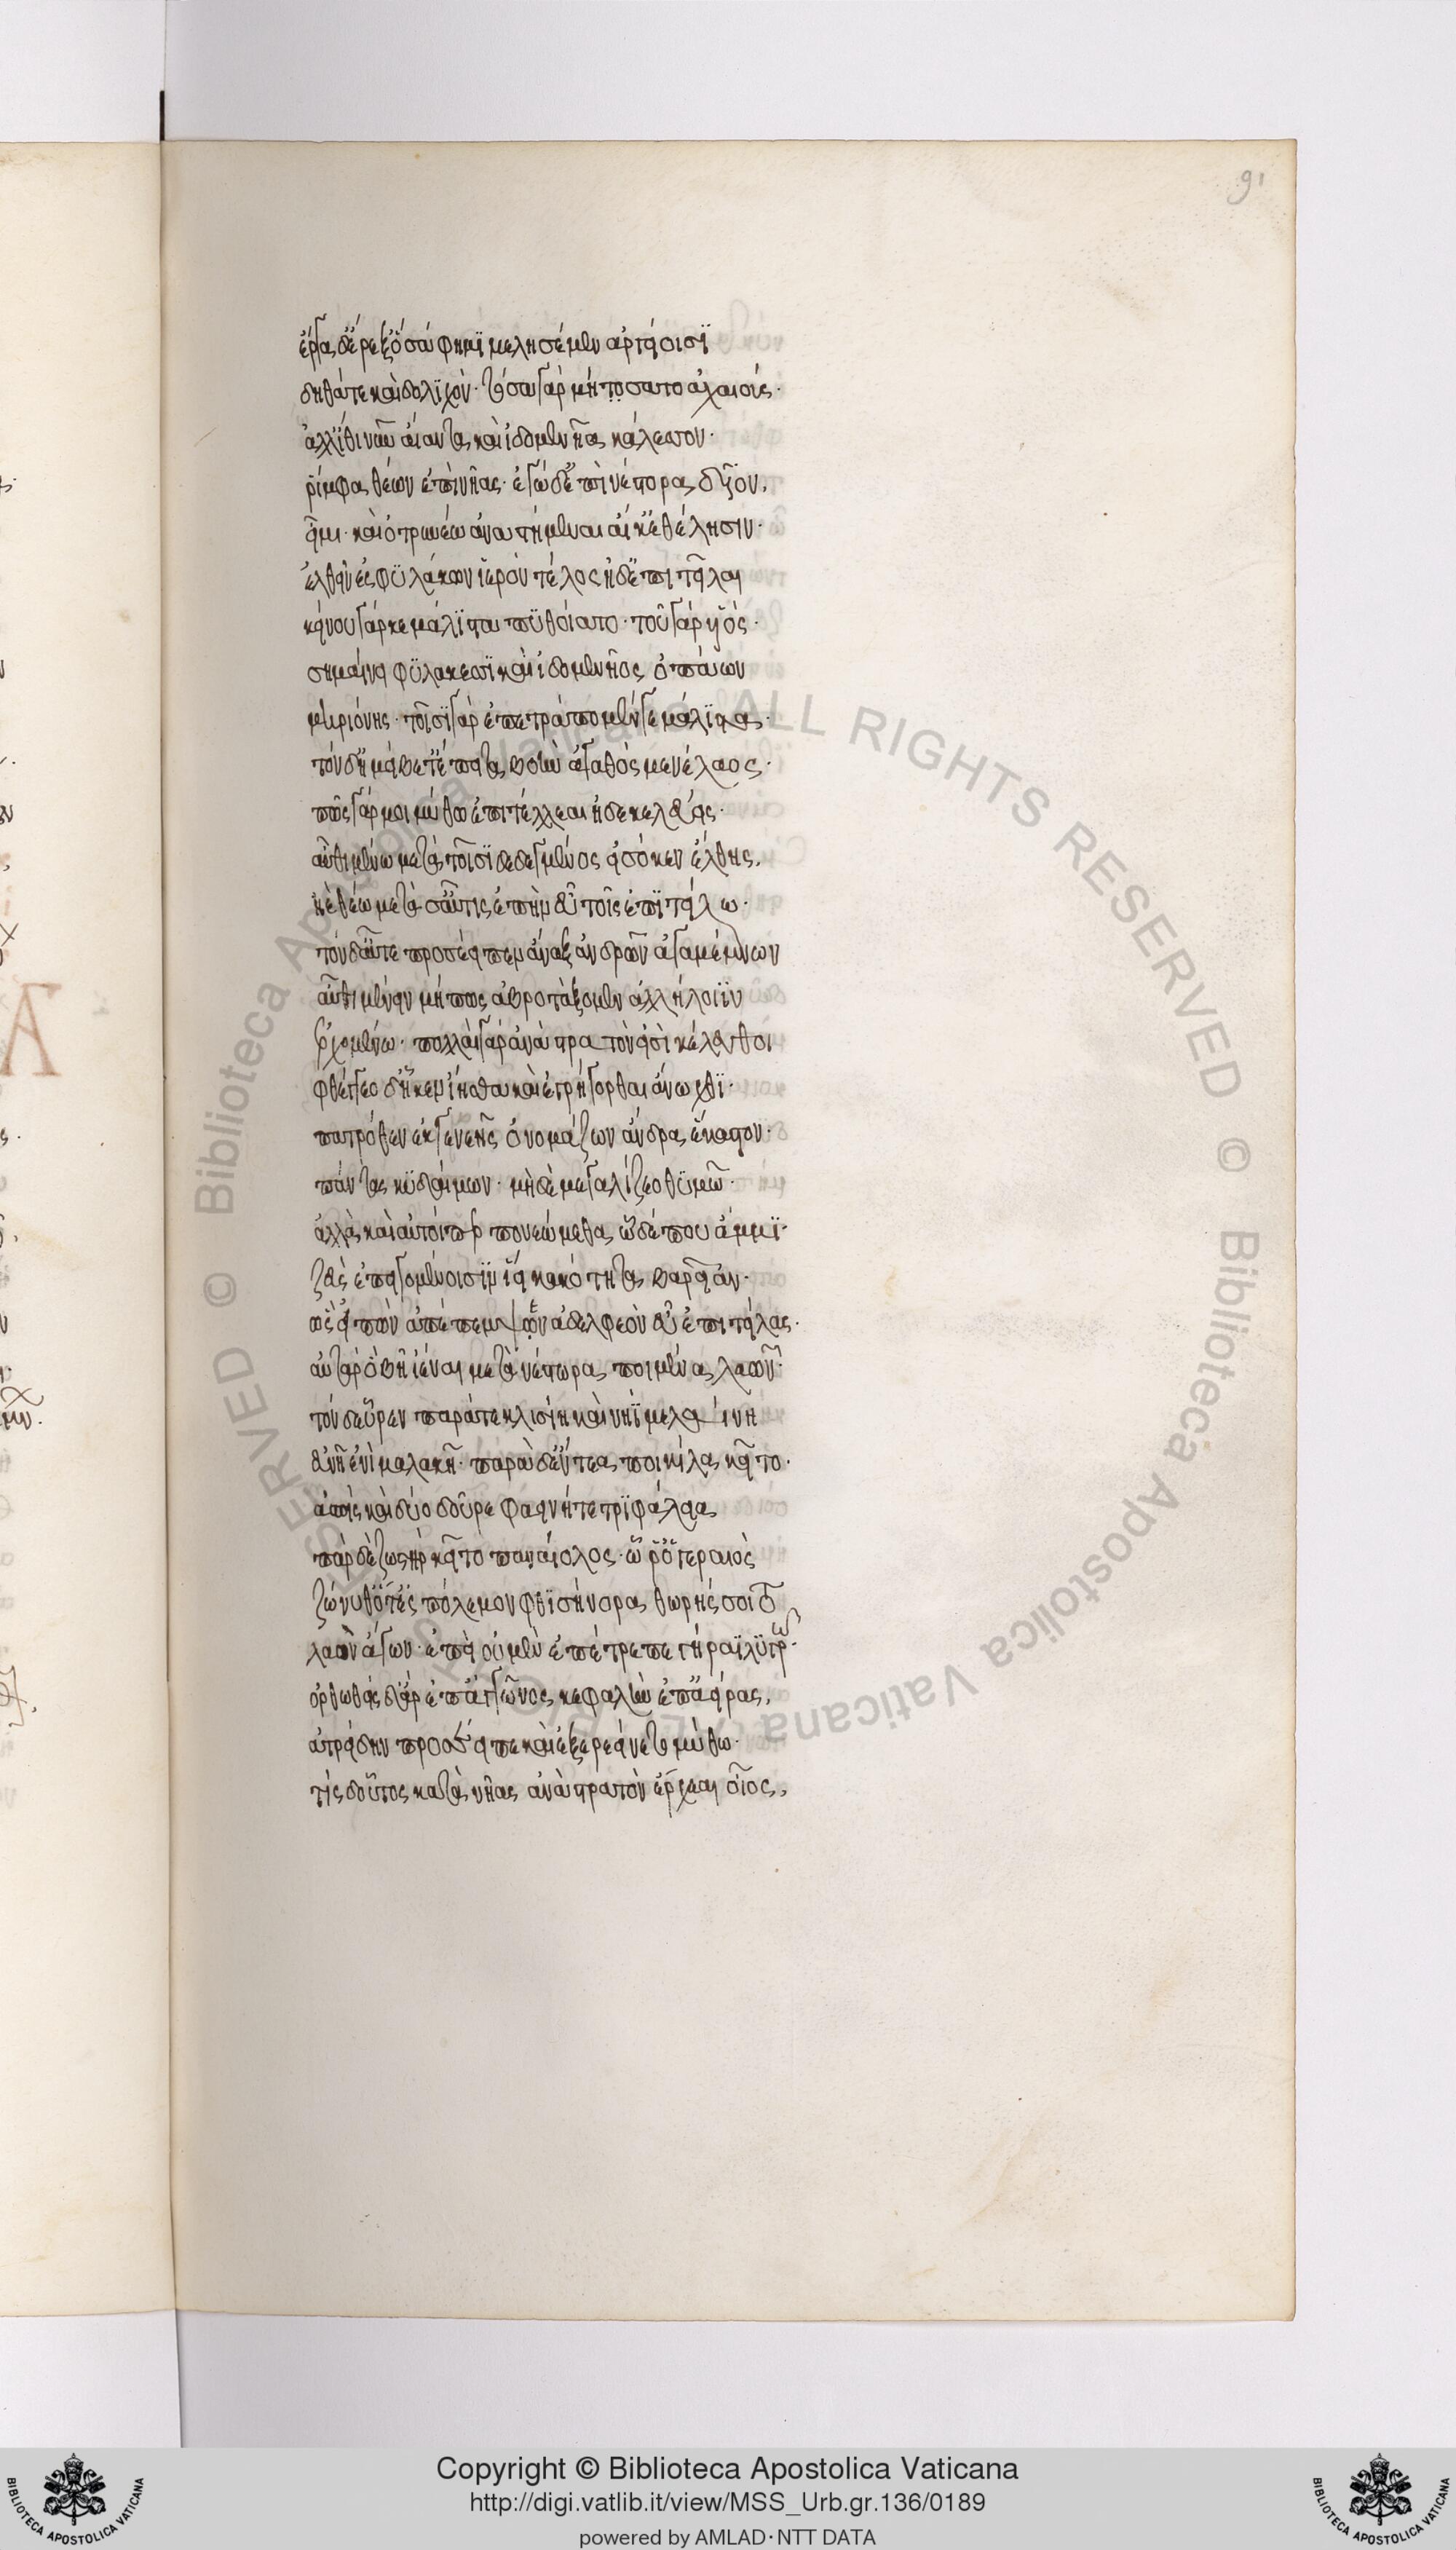 91
ἔργα δ' ἔρεξ' ὅσα φημὶ μελησέμεν ἀργείοισι
δηθά τε καὶ δολιχόν· τόσα γὰρ μήσατο ἀχαιούς·
ἀλλ' ἴθι νῦν αἴαντα καὶ ἰδομενῆα κάλεσσον·
ῥίμφα θέων ἐπὶ νῆας· ἐγὼ δ' ἐπὶ νέστορα δῖον,
εἶμι· καὶ ὀτρυνέω ἀναστήμεναι αἴ κ' ἐθέλησιν·
ἐλθεῖν ἐς φυλάκων ἱερὸν τέλος ἠδ' ἐπιτεῖλαι
κείνου γάρ κε μάλιστα πυθοίατο· τοῦ γὰρ υἱός·
σημαίνει φυλάκεσσι καὶ ἰδομενῆος ὀπάων
μηριόνης· τοῖσι γὰρ ἐπετράπομέν γε μάλιστα·
τὸν δ' ἠμείβετ' ἔπειτα βοὴν ἀγαθὸς μενέλαος·
πῶς γάρ μοι μύθω ἐπιτέλλεαι ἠδὲ κελεύεις·
αὖθι μένω μετὰ τοῖσι δεδεγμένος εἰσόκεν ἔλθης,
ἠὲ θέω μετὰ σ' αὖτις ἐπὴν εὖ τοῖς ἐπιτείλω·
τὸν δ' αὖτε προσέειπεν ἄναξ ἀνδρῶν ἀγαμέμνων
αὖθι μένειν μή πως ἀβροτάξομεν ἀλλήλοιϊν
ἐρχομένω· πολλαὶ γὰρ ἀνὰ στρατὸν εἰσὶ κέλευθοι
φθέγγεο δ' ἧ κεν ἴησθα καὶ ἐγρήγορθαι ἄνωχθι·
πατρόθεν ἐκ γενεῆς ὀνομάζων ἄνδρα ἕκαστον·
πάντας κυδαίνων· μὴ δὲ μεγαλίζεο θυμῶ·
ἀλλὰ καὶ αὐτοί περ πονεώμεθα ὧδέ που ἄμμι·
ζεὺς ἐπὶ γεινομένοισιν ἵει κακότητα βαρεῖαν·
ὣς εἰπὼν ἀπέπεμπεν ἀδελφεὸν εὖ ἐπιτείλας·
αὐτὰρ ὃ βῆ ἰέναι μετὰ νέστορα ποιμένα λαῶν·
τὸν δ' εὗρεν παρά τε κλισίη καὶ νηῒ μελαίνη
εὐνῆ ἐνὶ μαλακῆ· παρὰ δ' ἔντεα ποικίλα κεῖτο·
ἀσπὶς καὶ δύο δοῦρε φαεινή τε τρυφάλεια
πὰρ δὲ ζωστὴρ κεῖτο παναίολος· ὧ ῥ' ὃ γεραιὸς
ζώννυθ' ὅτ' ἐς πόλεμον φθισήνορα θωρήσσοιτο
λαὸν ἄγων· ἐπεὶ οὐ μὲν ἐπέτρεπε γήραϊ λυγρῶ·
ὀρθωθεὶς δ' ἄρ' ἐπ' ἀγκῶνος κεφαλὴν ἐπαείρας,
ἀτρείδην προσέειπε καὶ ἐξερεείνετο μύθω·
τίς δ' οὗτος κατὰ νῆας ἀνὰ στρατὸν ἔρχεαι οἶος,
Copyright © Biblioteca Apostolica Vaticana
http://digi.vatlib.it/view/MSS_Urb.gr.136/0189
powered by AMLAD·NTT DATA